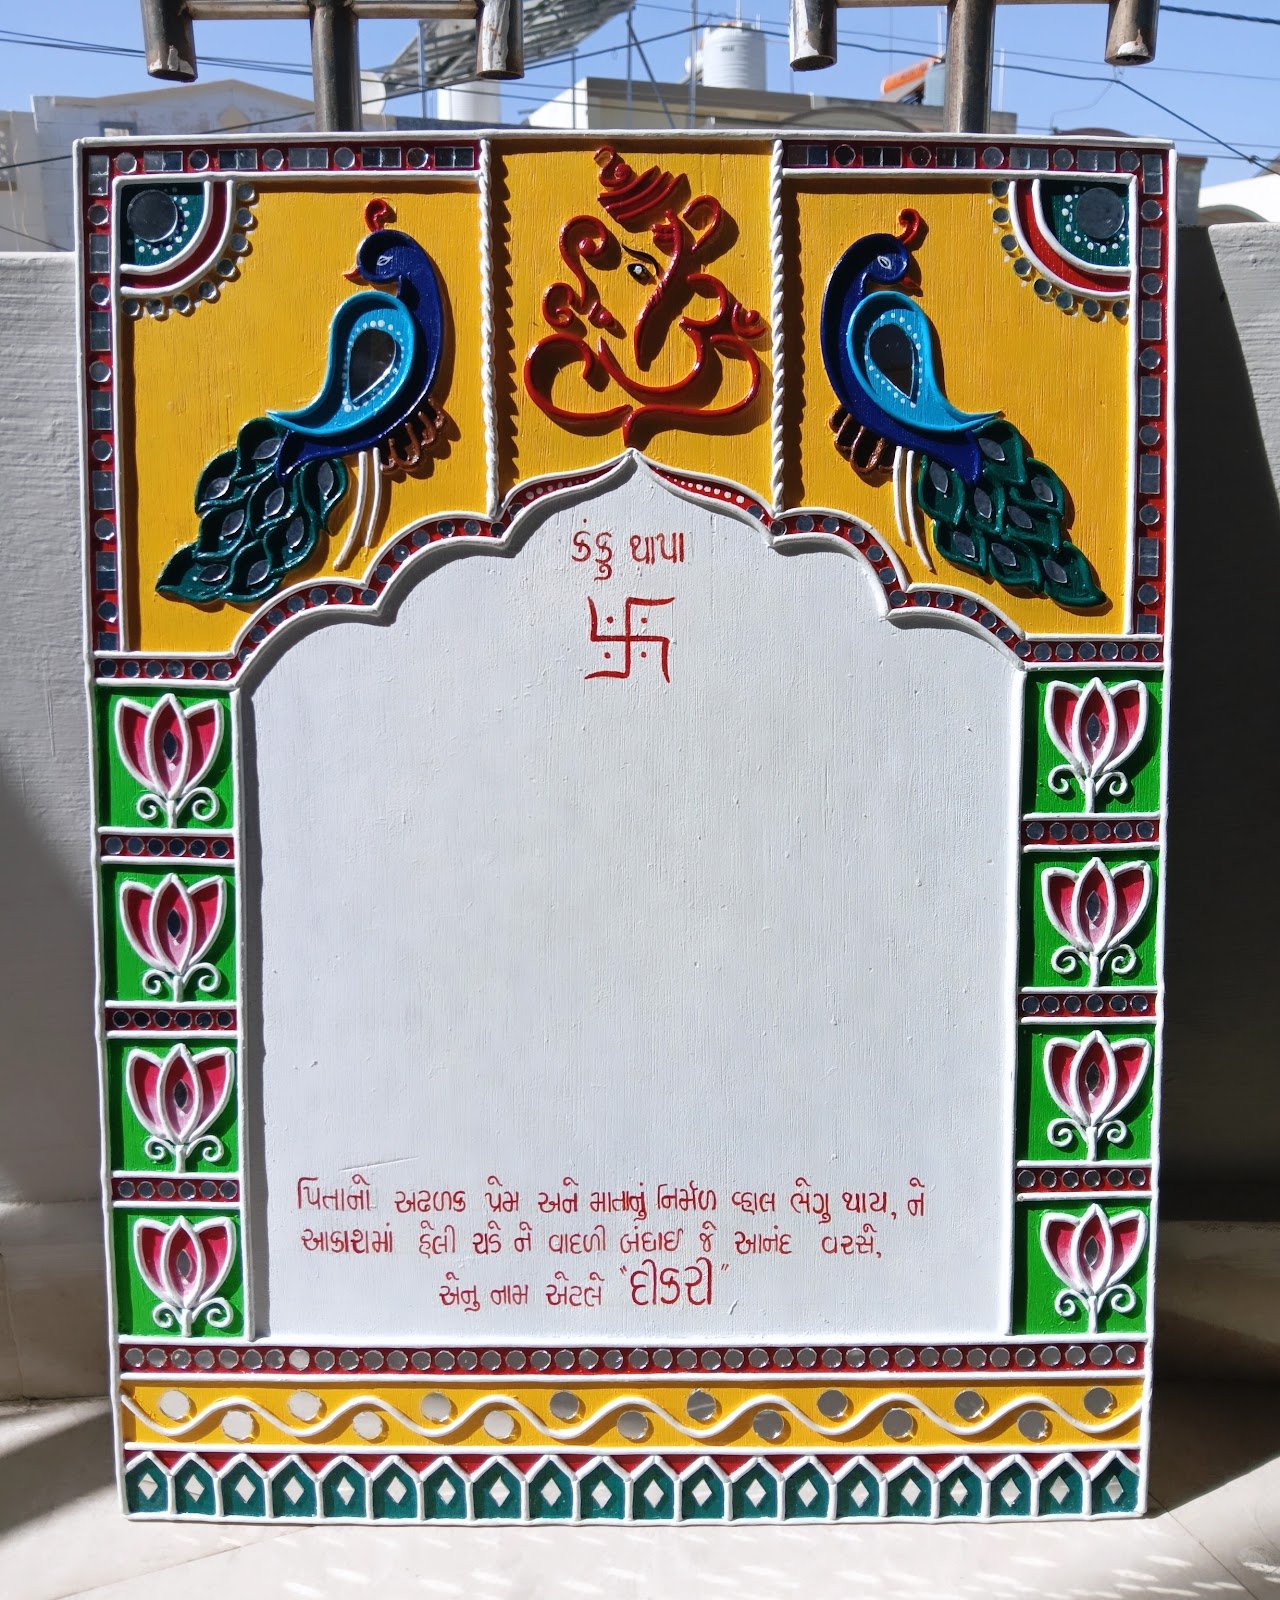 કંકુ થાપા
પિતાનો અઢળક પ્રેમ અને માતાનું નિર્મળ વ્હાલ ભેગુ થાય, ને
આકાશમાં હેલી ચડે ને વાદળી બંધાઈ જે આનંદ વરસે,
એનુ નામ એટલે "દીકરી"